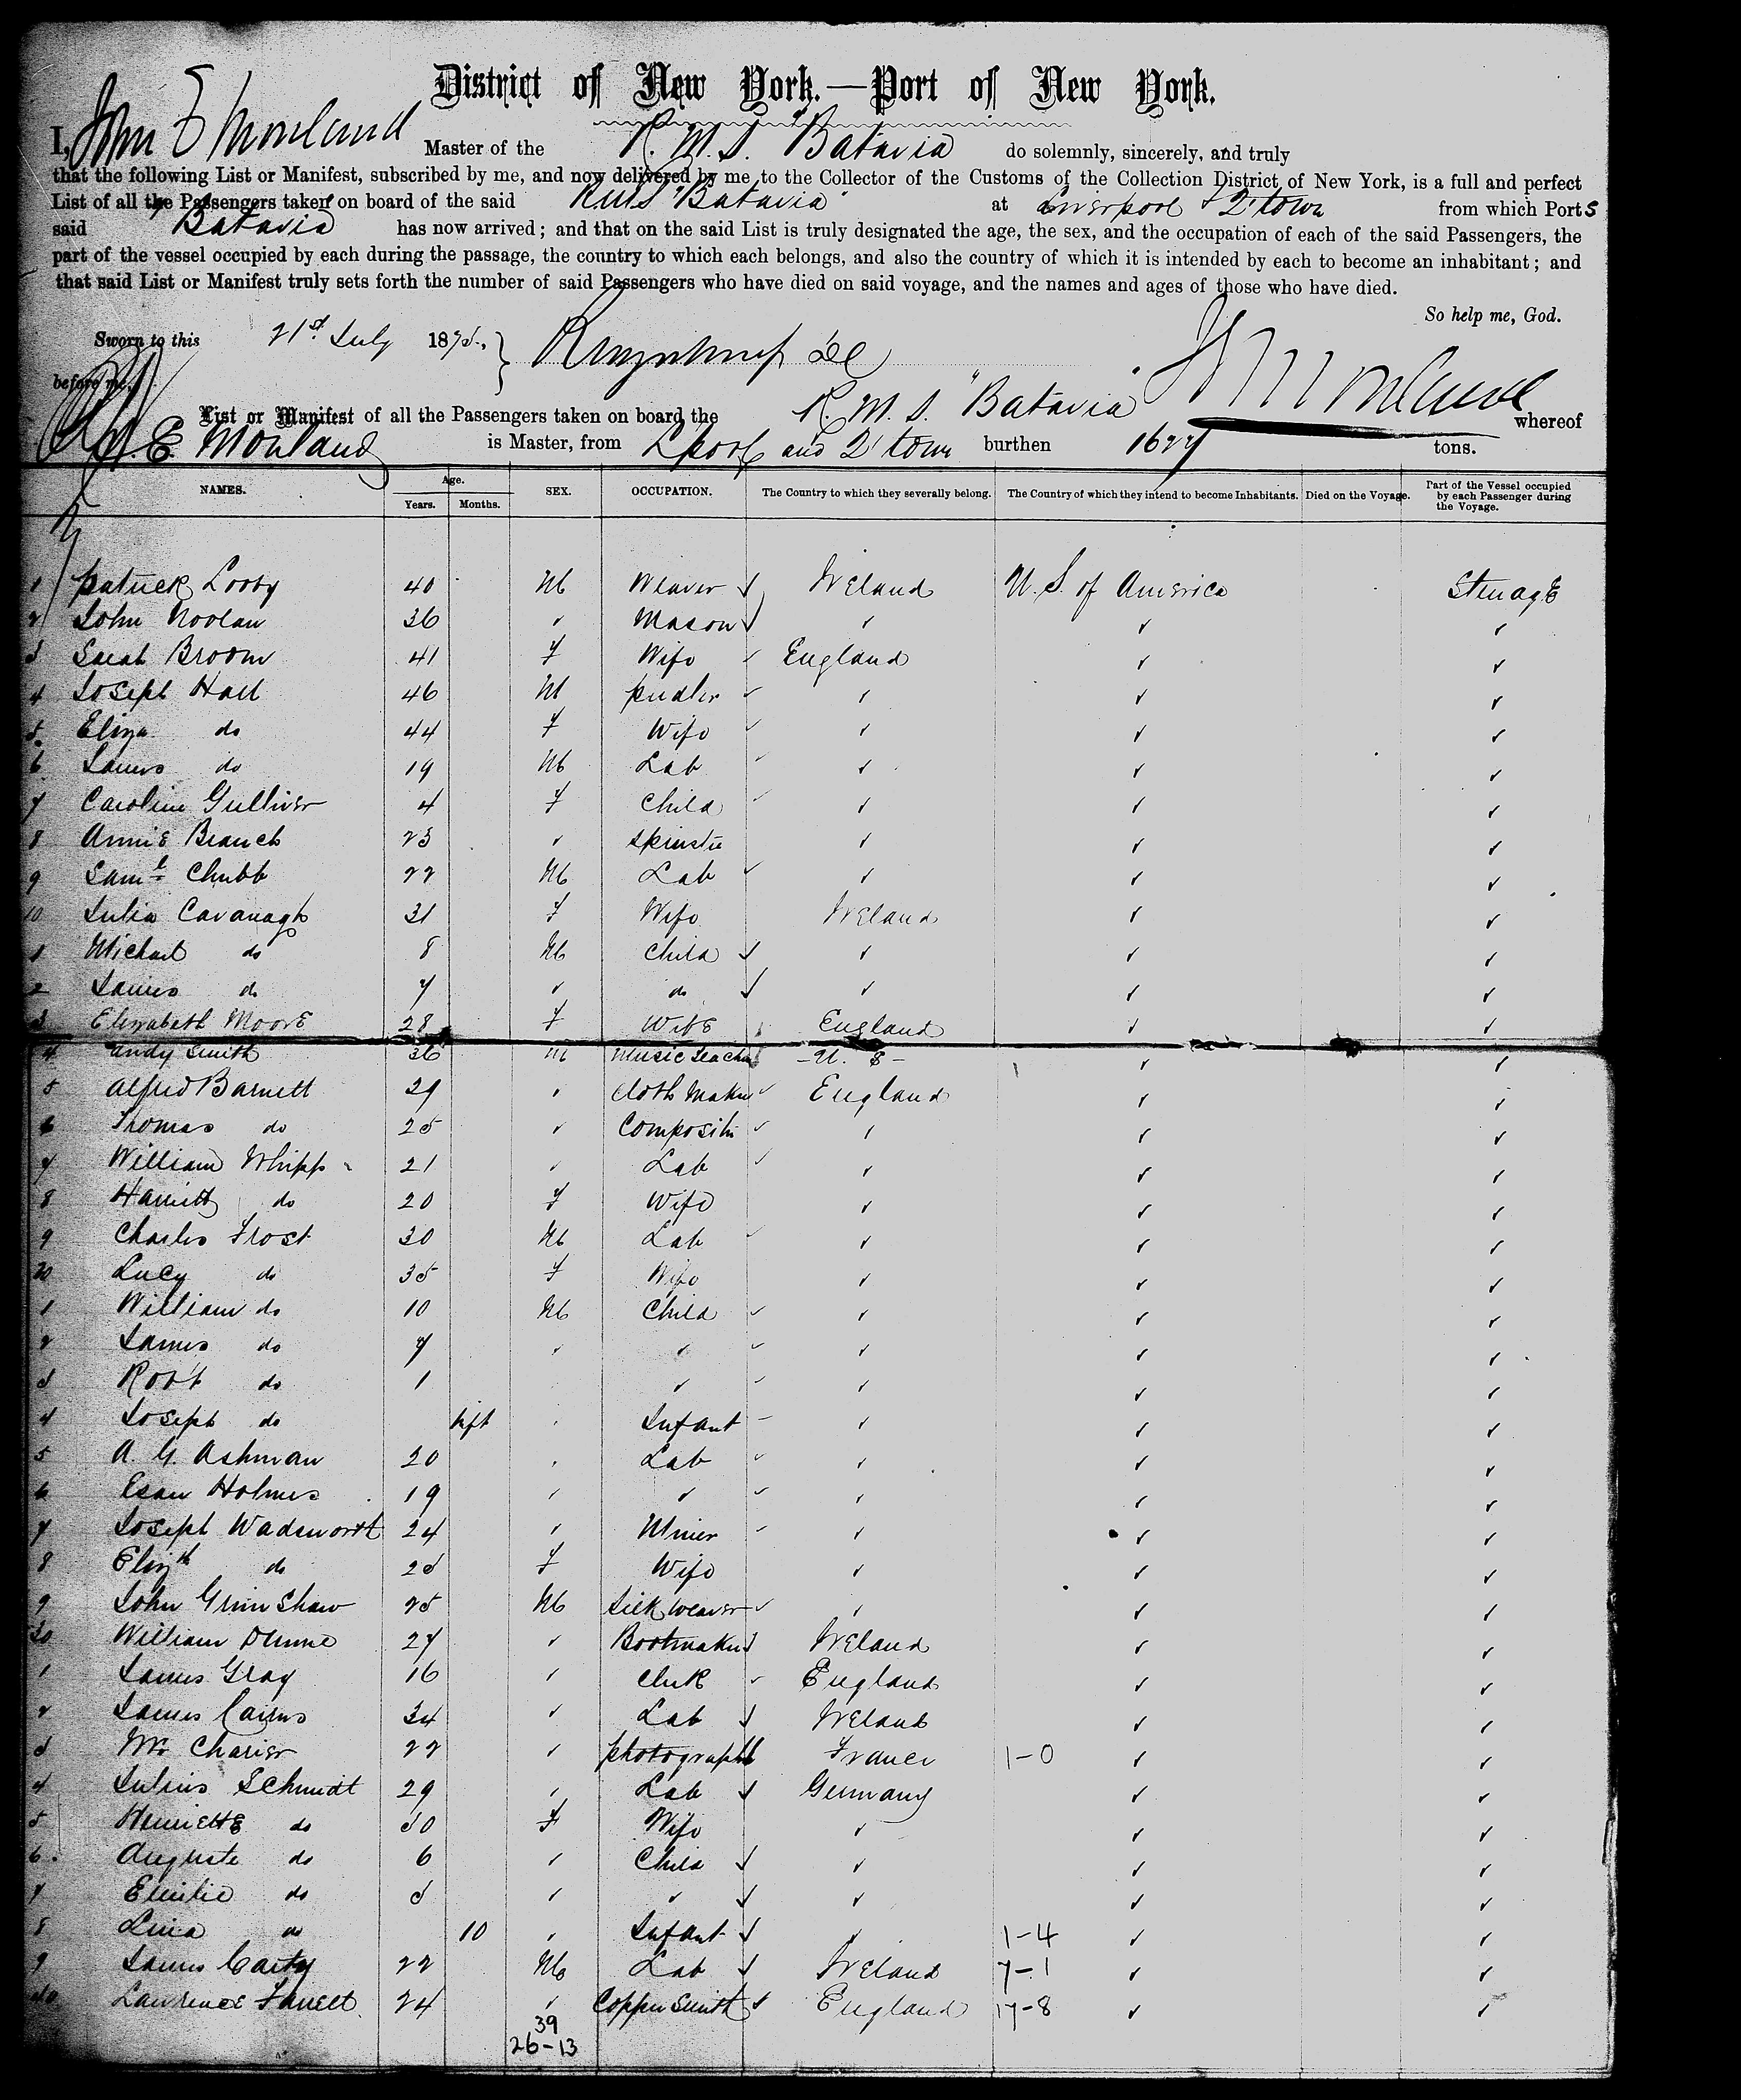 District of New York.—Port of New York.
I, John E Mouland Master of the R. M. S. "Batavia do solemnly, sincerely, and truly
that the following List or Manifest, subscribed by me, and now delivered by me to the Collector of the Customs of the Collection District of New York, is a full and perfect
List of all the Passengers taken on board of the said RMS "Batavia" at Liverpool & Q'town from which Ports
said "Batavia has now arrived; and that on the said List is truly designated the age, the sex, and the occupation of each of the said Passengers, the
part of the vessel occupied by each during the passage, the country to which each belongs, and also the country of which it is intended by each to become an inhabitant; and
that said List or Manifest truly sets forth the number of said Passengers who have died on said voyage, and the names and ages of those who have died.
So help me, God.
Sworn to this 21st July 1875,
before me,
List or Manifest of all the Passengers taken on board the R. M. S. "Batavia" whereof
E Mouland is Master, from Lpool and Q'town burthen 1627 tons.
NAMES. Age. Years. Months. SEX. OCCUPATION. The Country to which they severally belong. The Country of which they intend to become Inhabitants. Died on the Voyage. Part of the Vessel occupied by each Passenger during the Voyage.
1 Patrick Looby 40 M Weaver Ireland U. S. of America Steerage
2 John Noolan 36 " Mason " " "
3 Sarah Broom 41 F Wife England " "
4 Joseph Hall 46 M Pudler " " "
5 Eliza do 44 F Wife " " "
6 James do 19 M Lab " " "
7 Caroline Gulliver 4 F Child " " "
8 Annie Branch 23 " Spinster " " "
9 Saml Chubb 22 M Lab " " "
10 Julia Cavanagh 31 F Wife Ireland " "
1 Michael do 8 M Child " " "
2 James do 7 " do " " "
3 Elizabeth Moore 28 F Wife England " "
4 Andy Smith 36 M Music Teacher - U. S - " "
5 Alfred Barnett 29 " Cloth Maker England " "
6 Thomas do 25 " Compositor " " "
7 William Whipp 21 " Lab " " "
8 Harriett do 20 F Wife " " "
9 Charles Frost 30 M Lab " " "
20 Lucy do 35 F Wife " " "
1 William do 10 M Child " " "
2 James do 7 " " " " "
3 Robt do 1 " " " "
4 Joseph do " Infant " " "
5 A. G. Ashman 20 " Lab " " "
6 Esau Holmes 19 " " " " "
7 Joseph Wadsworth 24 " Miner " " "
8 Elizth do 23 F Wife " " "
9 John Grimshaw 25 M Silk weaver " " "
30 William Dunne 27 " Bootmaker Ireland " "
1 James Gray 16 " Clerk England " "
2 James Cairns 34 " Lab Ireland " "
3 Mr Charier 22 " Photograph France 1-0 " "
4 Julius Schmidt 29 " Lab Germany " "
5 Henriette do 30 F Wife " " "
6 Auguste do 6 " Child " " "
7 Emilie do 3 " " " " "
8 Lina do 10 " Infant " 1-4 " "
9 James Carty 22 M Lab Ireland 7-1 " "
40 Lawrence Farrell 24 " Copper Smith England 17-8 " "
39
26-13